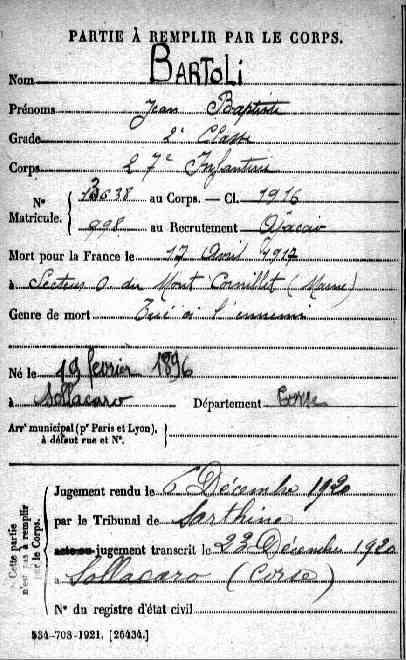 PARTIE À REMPLIR PAR LE CORPS.
Nom BARTOLI
Prénoms Jean Baptiste
Grade 2e Classe
Corps 27e Infanterie
N° Matricule. { 13638 au Corps. — Cl. 1916
998 au Recrutement Ajaccio
Mort pour la France le 17 Avril 1917
à Secteur O. du Mont Cornillet (Marne)
Genre de mort Tué à l'ennemi
Né le 19 février 1896
à Sollacaro Département Corse
Arrt municipal (pr Paris et Lyon), à défaut rue et N°. }
Cette partie n'est pas à remplir par le Corps.
Jugement rendu le 6 Décembre 1920
par le Tribunal de Sarthène
acte ou jugement transcrit le 22 Décembre 1920
à Sollacaro (Corse)
N° du registre d'état civil
534-708-1921. [26434.]